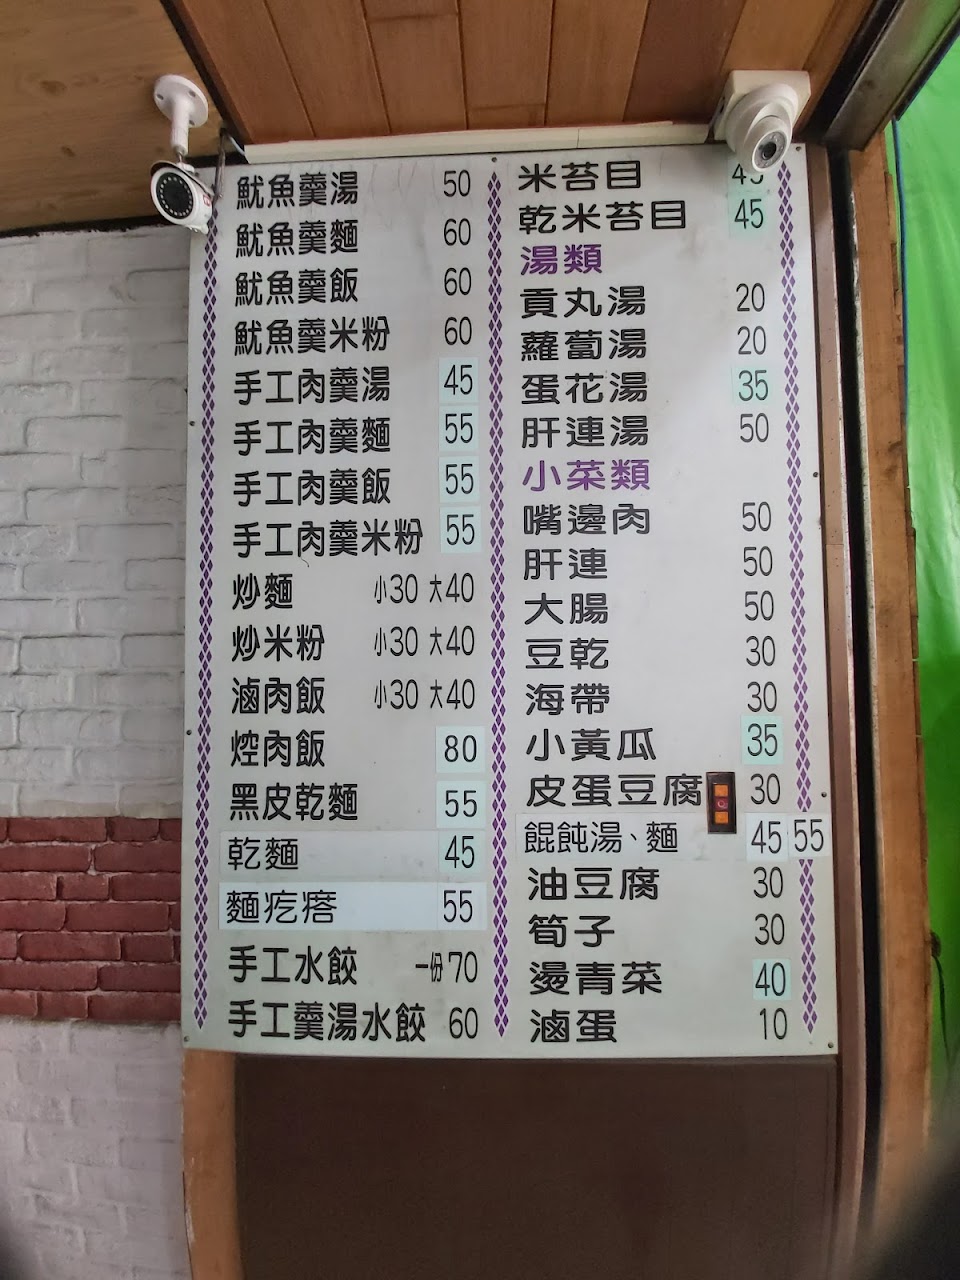 魷魚羹湯 50
魷魚羹麵 60
魷魚羹飯 60
魷魚羹米粉 60
手工肉羹湯 45
手工肉羹麵 55
手工肉羹飯 55
手工肉羹米粉 55
炒麵 小30 大40
炒米粉 小30 大40
滷肉飯 小30 大40
焢肉飯 80
黑皮乾麵 55
乾麵 45
麵疙瘩 55
手工水餃 一份70
手工羹湯水餃 60
米苔目 45
乾米苔目 45
湯類
貢丸湯 20
蘿蔔湯 20
蛋花湯 35
肝連湯 50
小菜類
嘴邊肉 50
肝連 50
大腸 50
豆乾 30
海帶 30
小黃瓜 35
皮蛋豆腐 30
餛飩湯、麵 45 55
油豆腐 30
筍子 30
燙青菜 40
滷蛋 10